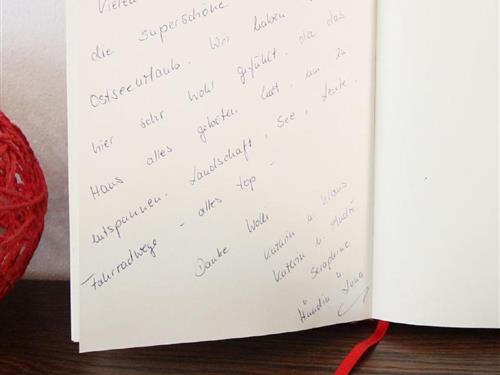 Vielen
die superschöne
Ostseeurlaub. Wir haben
hier sehr wohl gefühlt, da das
Haus alles geboten hat, um zu
entspannen. Landschaft, See, Leute,
Fahrradwege - alles top -
Danke
Kathrin u. Klaus
Kathrin u. André
Seraphine
Hündin Luna